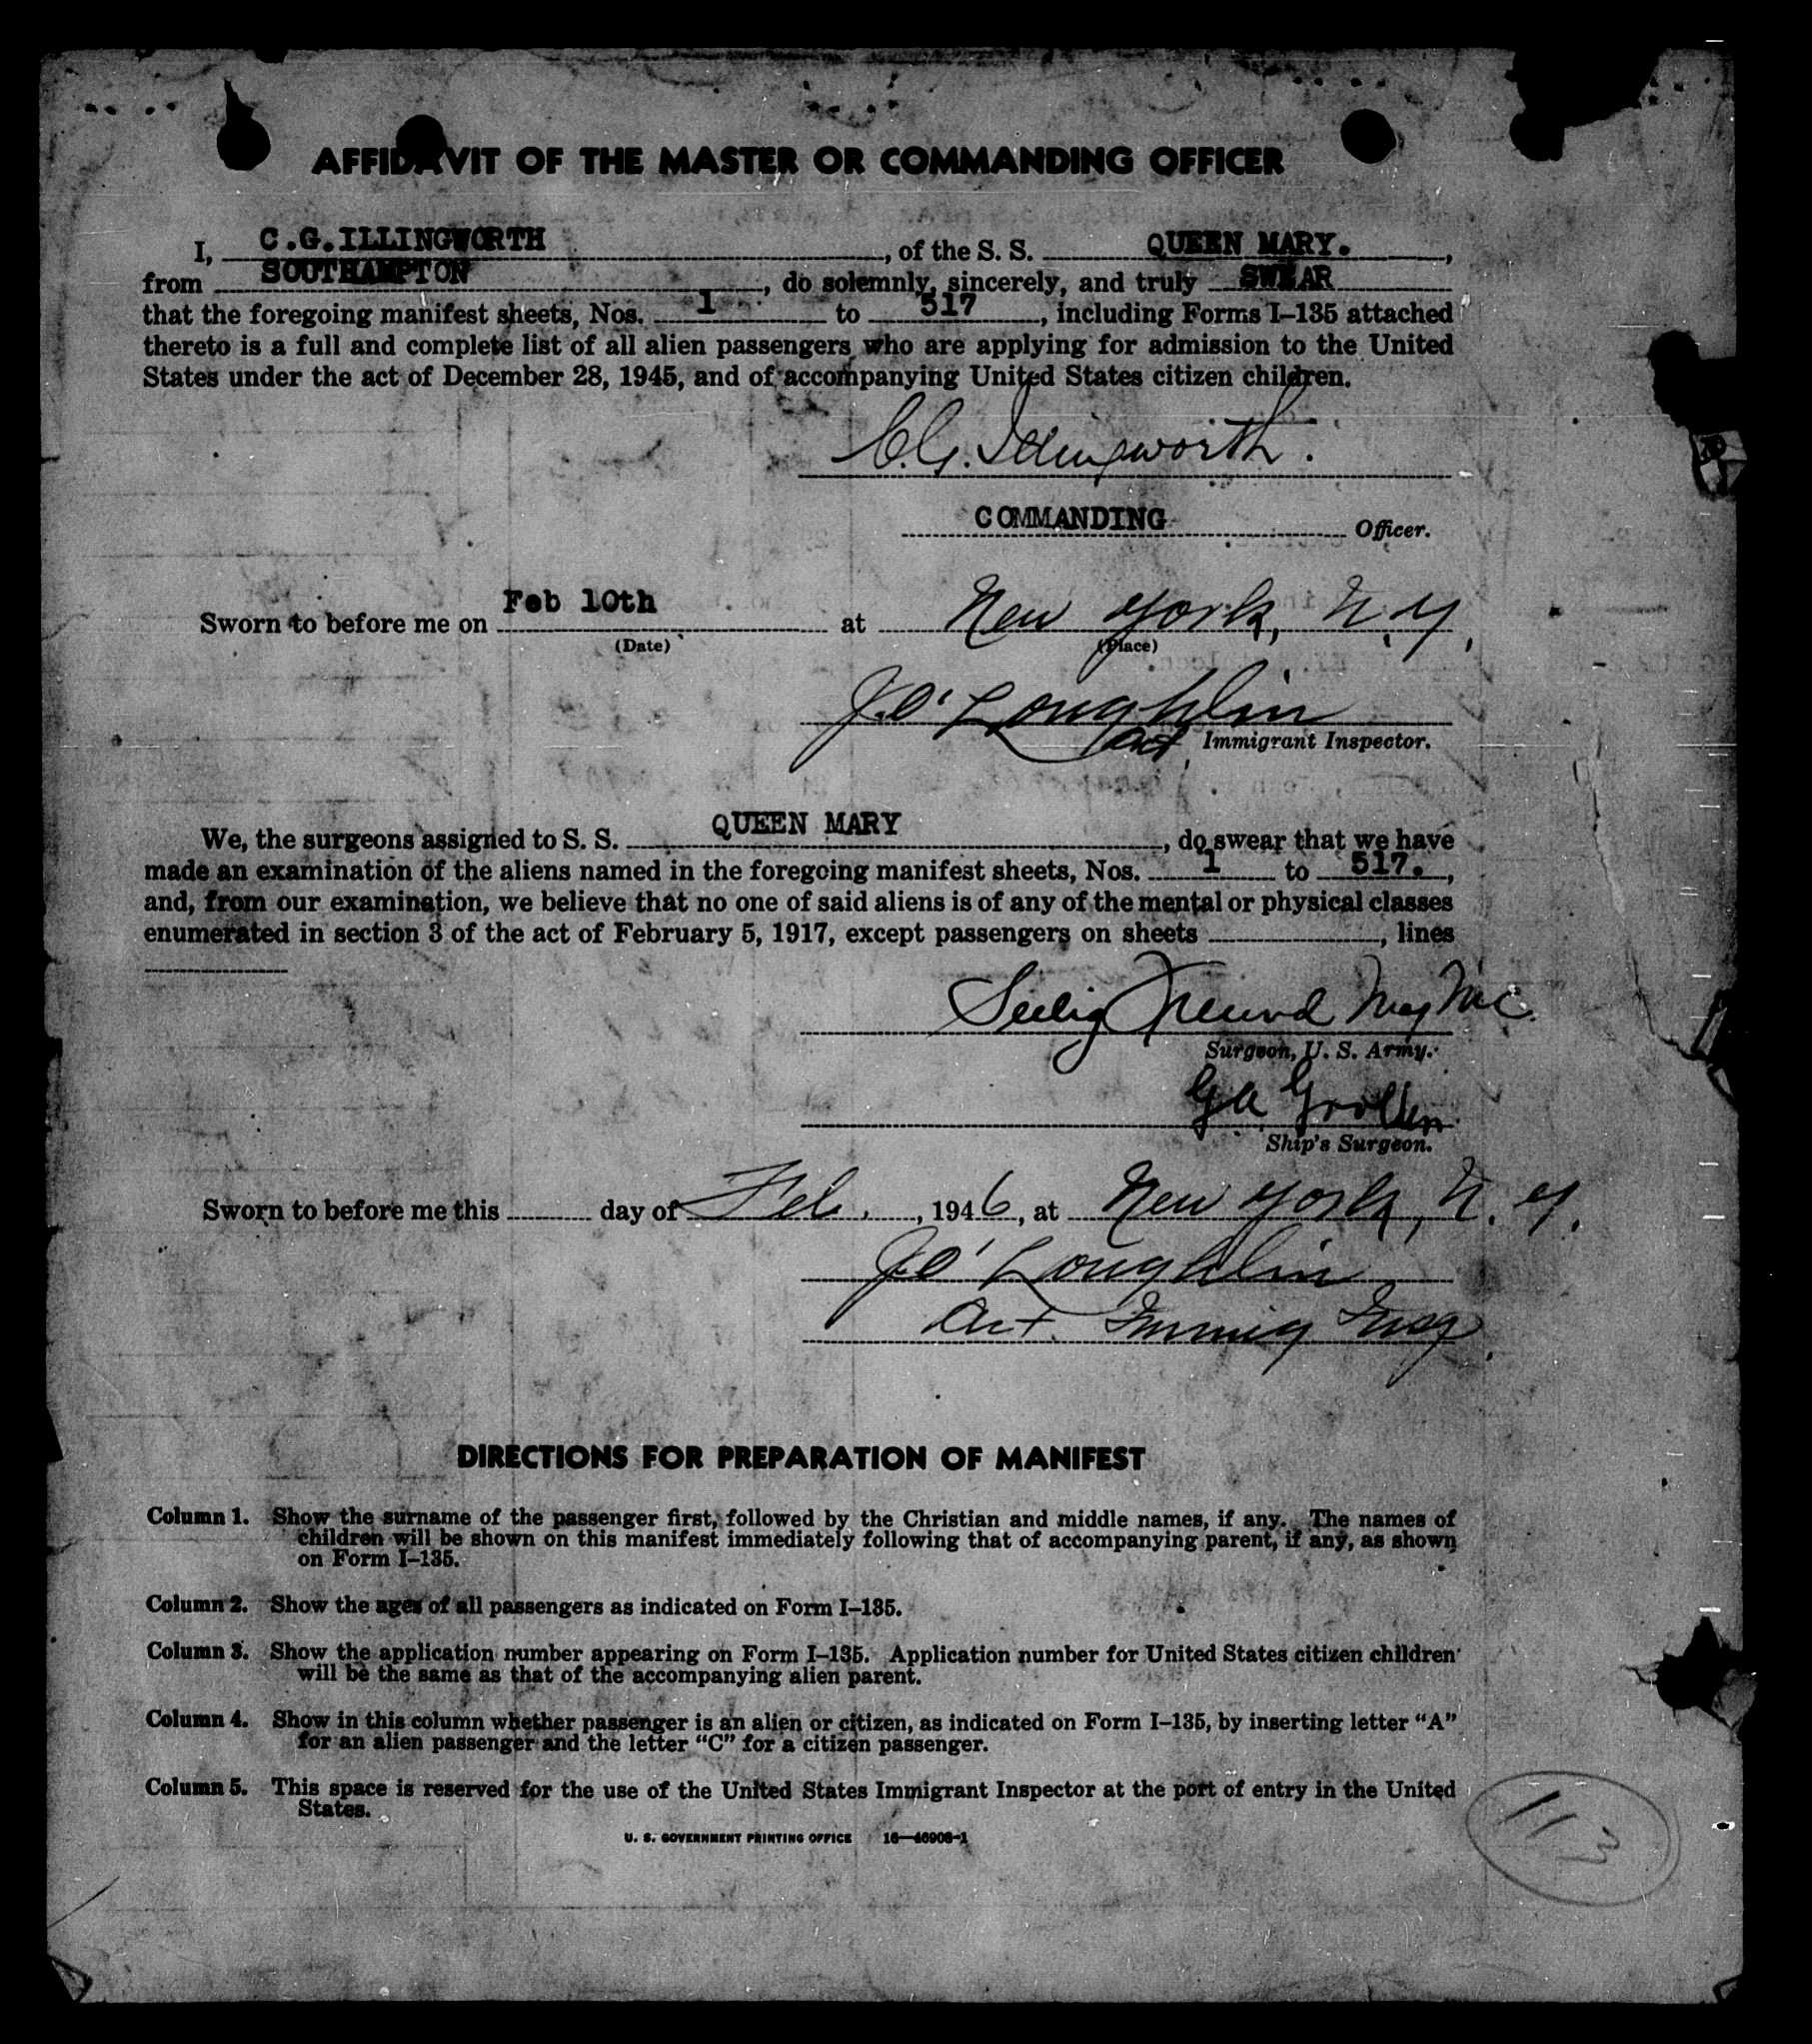 AFFIDAVIT OF THE MASTER OR COMMANDING OFFICER
I, C.G.ILLINGWORTH, of the S. S. QUEEN MARY.,
from SOUTHAMPTON, do solemnly, sincerely, and truly SWEAR
that the foregoing manifest sheets, Nos. 1 to 517, including Forms I–135 attached
thereto is a full and complete list of all alien passengers who are applying for admission to the United
States under the act of December 28, 1945, and of accompanying United States citizen children.
C.G. Illingworth.
COMMANDING Officer.
Sworn to before me on Feb 10th at New York, N.Y.
(Date) (Place)
J. O'Loughlin
Act. Immigrant Inspector.
We, the surgeons assigned to S. S. QUEEN MARY, do swear that we have
made an examination of the aliens named in the foregoing manifest sheets, Nos. 1 to 517.,
and, from our examination, we believe that no one of said aliens is of any of the mental or physical classes
enumerated in section 3 of the act of February 5, 1917, except passengers on sheets , lines
Seelig Freund Maj MC.
Surgeon, U. S. Army.
Ship's Surgeon.
Sworn to before me this day of Feb., 1946, at New York, N. Y.
J. O'Loughlin
Act. Immig Insp.
DIRECTIONS FOR PREPARATION OF MANIFEST
Column 1. Show the surname of the passenger first, followed by the Christian and middle names, if any. The names of
children will be shown on this manifest immediately following that of accompanying parent, if any, as shown
on Form I–135.
Column 2. Show the ages of all passengers as indicated on Form I–135.
Column 3. Show the application number appearing on Form I–135. Application number for United States citizen children
will be the same as that of the accompanying alien parent.
Column 4. Show in this column whether passenger is an alien or citizen, as indicated on Form I–135, by inserting letter “A”
for an alien passenger and the letter “C” for a citizen passenger.
Column 5. This space is reserved for the use of the United States Immigrant Inspector at the port of entry in the United
States.
U. S. GOVERNMENT PRINTING OFFICE 16—46908-1
113